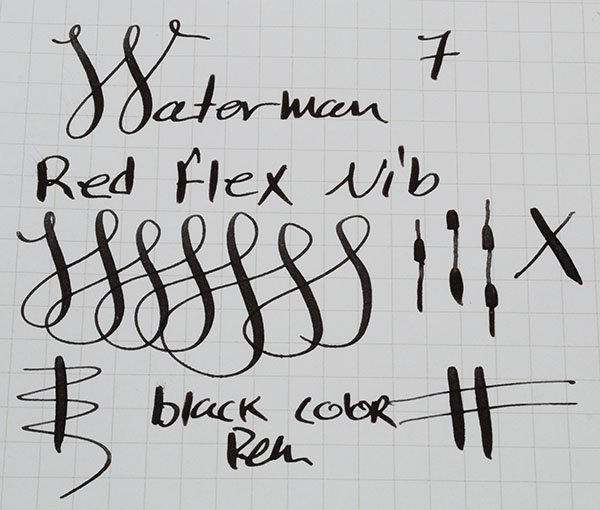 Waterman 7
Red Flex Nib
black color
Pen